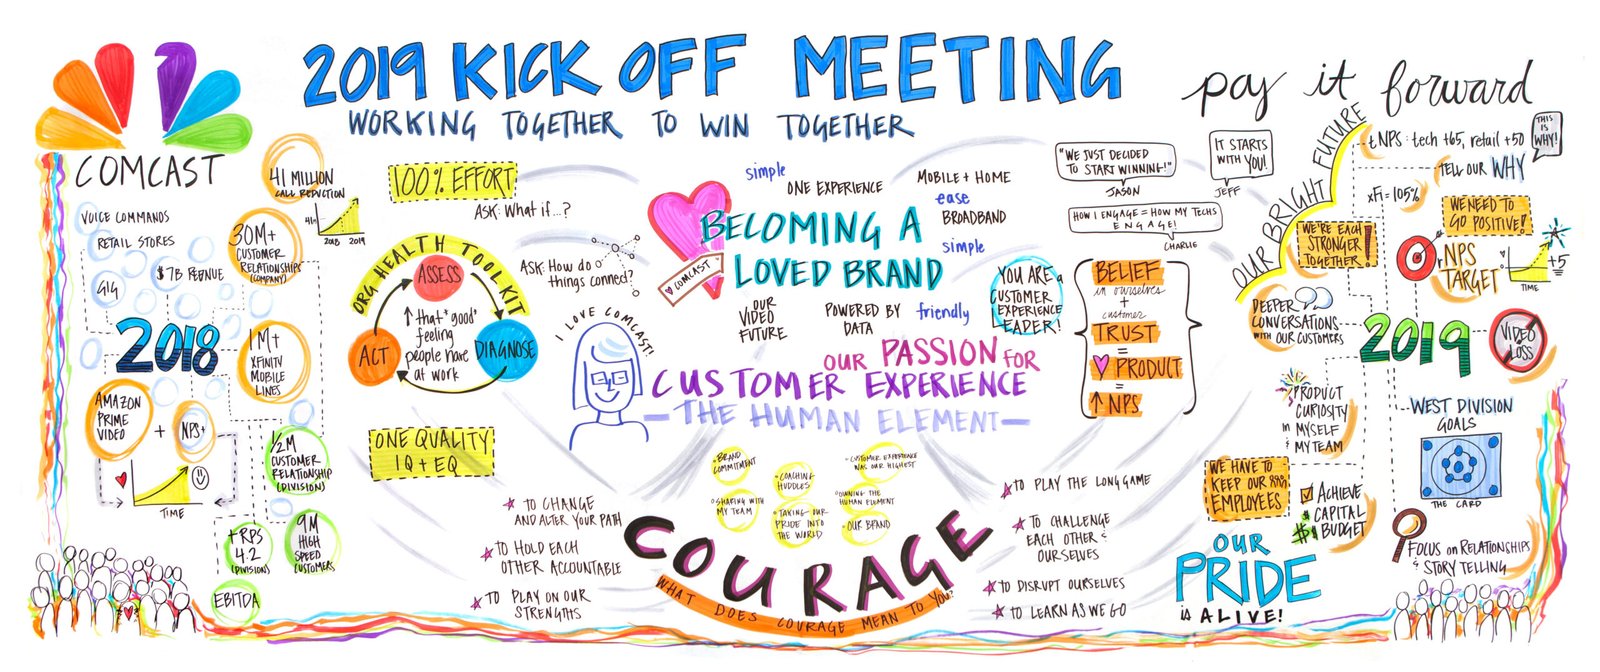 2019 KICK OFF MEETING
WORKING TOGETHER TO WIN TOGETHER
pay it forward
COMCAST
VOICE COMMANDS
RETAIL STORES
$7B REVENUE
GIG
2018
41 MILLION
CALL REDUCTION
41M
2018 2019
30M+
CUSTOMER
RELATIONSHIPS
(COMPANY)
1M+
XFINITY
MOBILE
LINES
AMAZON
PRIME
VIDEO
+
NPS+
TIME
1/2M
CUSTOMER
RELATIONSHIP
(DIVISION)
+RPS
4.2
(DIVISION)
9M
HIGH
SPEED
CUSTOMERS
EBITDA
100% EFFORT
ASK: What if...?
ASK: How do
things connect?
ORG HEALTH TOOLKIT
ASSESS
DIAGNOSE
ACT
↑ that "good"
feeling
people have
at work
ONE QUALITY
IQ + EQ
I LOVE COMCAST!
simple
ONE EXPERIENCE
MOBILE + HOME
ease
BROADBAND
simple
♥ COMCAST
BECOMING A
LOVED BRAND
OUR
VIDEO
FUTURE
POWERED BY
DATA
friendly
YOU ARE A
CUSTOMER
EXPERIENCE
LEADER!
OUR PASSION FOR
CUSTOMER EXPERIENCE
—THE HUMAN ELEMENT—
"WE JUST DECIDED
TO START WINNING!"
JASON
IT STARTS
WITH YOU!
JEFF
HOW I ENGAGE = HOW MY TECHS
ENGAGE!
CHARLIE
BELIEF
in ourselves
+
customer
TRUST
=
♥ PRODUCT
=
↑ NPS
• BRAND
COMMITMENT
• COACHING
HUDDLES
• CUSTOMER EXPERIENCE
WAS OUR HIGHEST
• SHAPING WITH
MY TEAM
• TAKING OUR
PRIDE INTO
THE WORLD
• OWNING THE
HUMAN ELEMENT
• OUR BRAND
COURAGE
WHAT DOES COURAGE MEAN TO YOU?
★ TO CHANGE
AND ALTER YOUR PATH
★ TO HOLD EACH
OTHER ACCOUNTABLE
★ TO PLAY ON OUR
STRENGTHS
★ TO PLAY THE LONG GAME
★ TO CHALLENGE
EACH OTHER +
OURSELVES
★ TO DISRUPT OURSELVES
★ TO LEARN AS WE GO
OUR BRIGHT FUTURE
tNPS: tech +65, retail +50
THIS
IS
WHY!
TELL OUR WHY
xFi = 105%
WE NEED TO
GO POSITIVE!
WE'RE EACH
STRONGER
TOGETHER!
NPS
TARGET
+5
TIME
DEEPER
CONVERSATIONS
WITH OUR CUSTOMERS
2019
VIDEO
LOSS
PRODUCT
CURIOSITY
in MYSELF
+ MY TEAM
WEST DIVISION
GOALS
THE CARD
WE HAVE TO
KEEP OUR
EMPLOYEES
ACHIEVE
CAPITAL
BUDGET
$$
FOCUS on RELATIONSHIPS
+ STORY TELLING
OUR
PRIDE
is ALIVE!